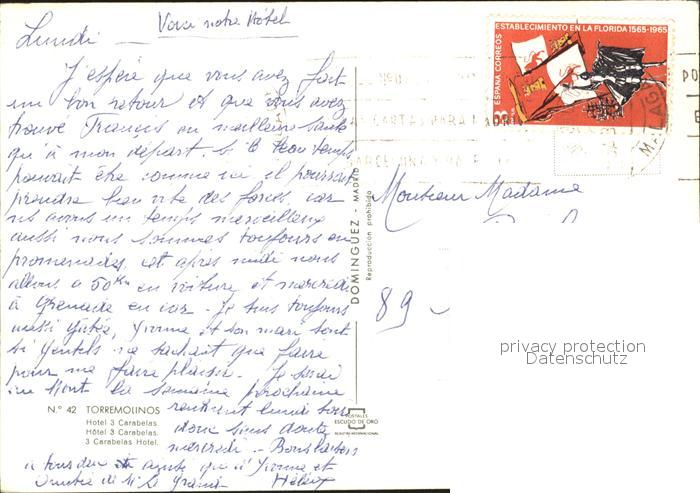 Lundi — Voici notre Hôtel
J'espère que vous avez fait
un bon retour et que vous avez
trouvé François en meilleure santé
qu'à mon départ. Si le beau temps
pouvait être comme ici il pourrait
prendre bien vite des forces, car
ns avons un temps merveilleux
aussi nous sommes toujours en
promenades, cet après midi nous
allons à 50 Km en voiture et mercredi
à Grenade en car. Je suis toujours
aussi gâtée, Yvonne et son mari sont
si gentils ne sachant que faire
pour me faire plaisir. Je serai
au Mont la semaine prochaine
rentrent lundi
donc sans doute
mercredi — Bons baisers
à tous deux ainsi que d'Yvonne et
Hélène
N.º 42 TORREMOLINOS
Hotel 3 Carabelas.
Hôtel 3 Carabelas.
3 Carabelas Hotel.
POSTALES
ESCUDO DE ORO
DOMINGUEZ - MADRID
Reproducción prohibida
ESPAÑA CORREOS
ESTABLECIMIENTO EN LA FLORIDA 1565-1965
3
CARTAS PARA MADRID
BARCELONA
MALAG
PO
Monsieur Madame
89 —
privacy protection
Datenschutz